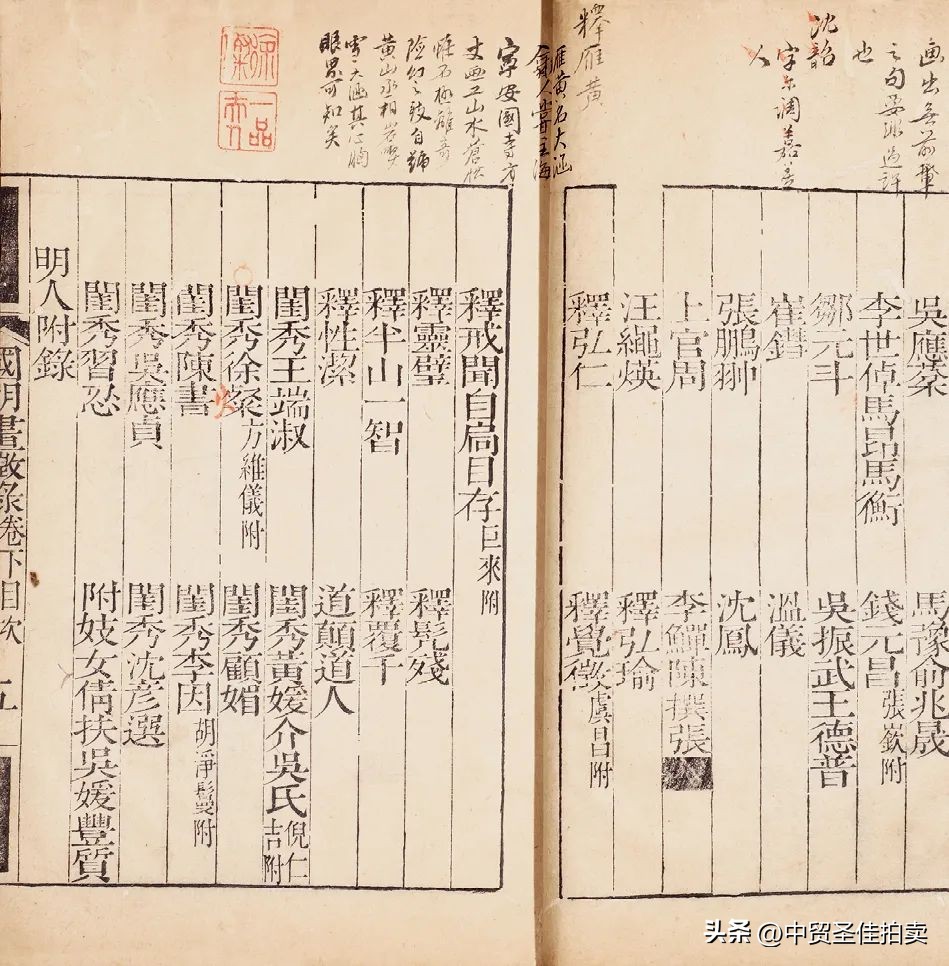 吳應棻
馬豫俞兆晟
李世倬馬昂馬衡
錢元昌張欽附
鄒元斗
吳振武王德普
崔鏏
溫儀
張鵬翀
沈鳳
上官周
李鱓陳撰張
汪繩煐
釋弘瑜
釋弘仁
釋覺徵虞昌附
釋戒聞自扃目存巨來附
釋靈璧
釋髡殘
釋半山一智
釋覆千
釋性潔
道顛道人
閨秀王端淑
閨秀黃媛介吳氏倪仁吉附
閨秀徐粲方維儀附
閨秀顧媚
閨秀陳書
閨秀李因胡淨鬘附
閨秀吳應貞
閨秀沈彥選
閨秀習忍
附妓女倩扶吳媛豐質
明人附錄
國朝畫徵錄卷下目次
五
畫出無前輩
之句
也
沈韶
字爾調嘉善
人
釋雁黃
雁黃名大涵
寧安國寺方
丈画工山水蒼松
怪石極離奇
險幻之致自號
黃山丞相
雪大涵其心胸
眼界可知矣
一品
头条 @中贸圣佳拍卖